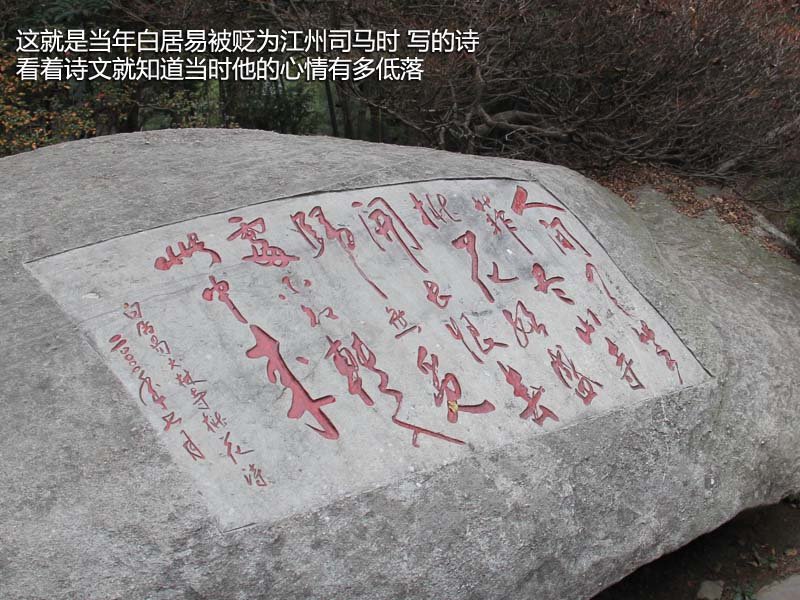 这就是当年白居易被贬为江州司马时 写的诗
看着诗文就知道当时他的心情有多低落
人间四月芳
菲尽山寺
桃花始盛
開長恨春
歸無覓
處不知轉入
此中来
白居易大林寺桃花诗
二000年七月